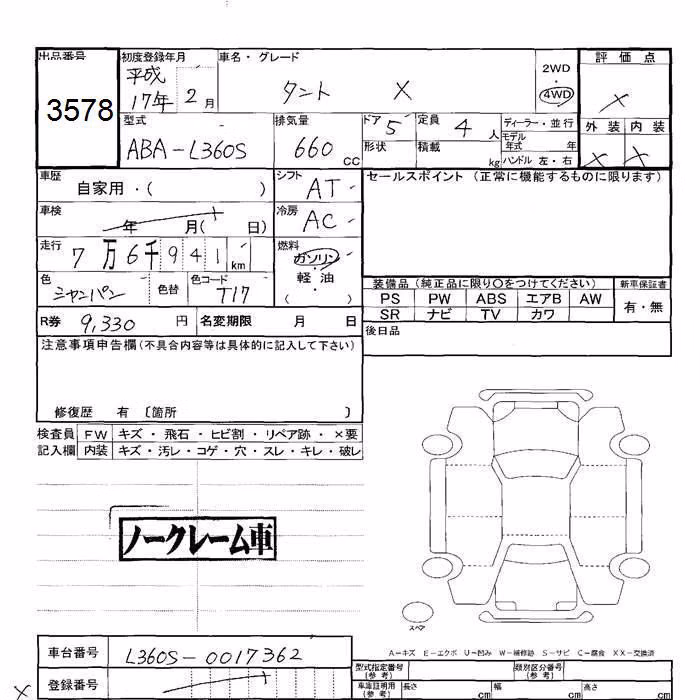 出品番号 初度登録年月 車名・グレード 2WD 評価点
3578 平成17年2月 タント X 4WD ×
型式 排気量 ドア 5 定員 4人 ディーラー・並行 外装 内装
ABA-L360S 660cc 形状 積載 kg モデル年式 年 × ×
ハンドル 左・右
車歴 自家用・( ) シフト AT セールスポイント (正常に機能するものに限ります)
車検 年 月( 日) 冷房 AC
走行 7万6千941km 燃料 ガソリン
軽油
( )
色 シャンパン 色替 色コード T17 装備品 (純正品に限り○をつけてください) 新車保証書
PS PW ABS エアB AW 有・無
R券 9,330円 名変期限 月 日 SR ナビ TV カワ
注意事項申告欄(不具合内容等は具体的に記入して下さい) 後日品
修復歴 有 〔箇所 〕
検査員 FW キズ・飛石・ヒビ割・リペア跡・×要
記入欄 内装 キズ・汚レ・コゲ・穴・スレ・キレ・破レ
ノークレーム車
スペア
A-キズ E-エクボ U-凹み W-補修跡 S-サビ C-腐食 XX-交換済
車台番号 L360S-0017362 型式指定番号(参考) 類別区分番号(参考)
登録番号 車庫証明用(参考) 長さ cm 幅 cm 高さ cm
×